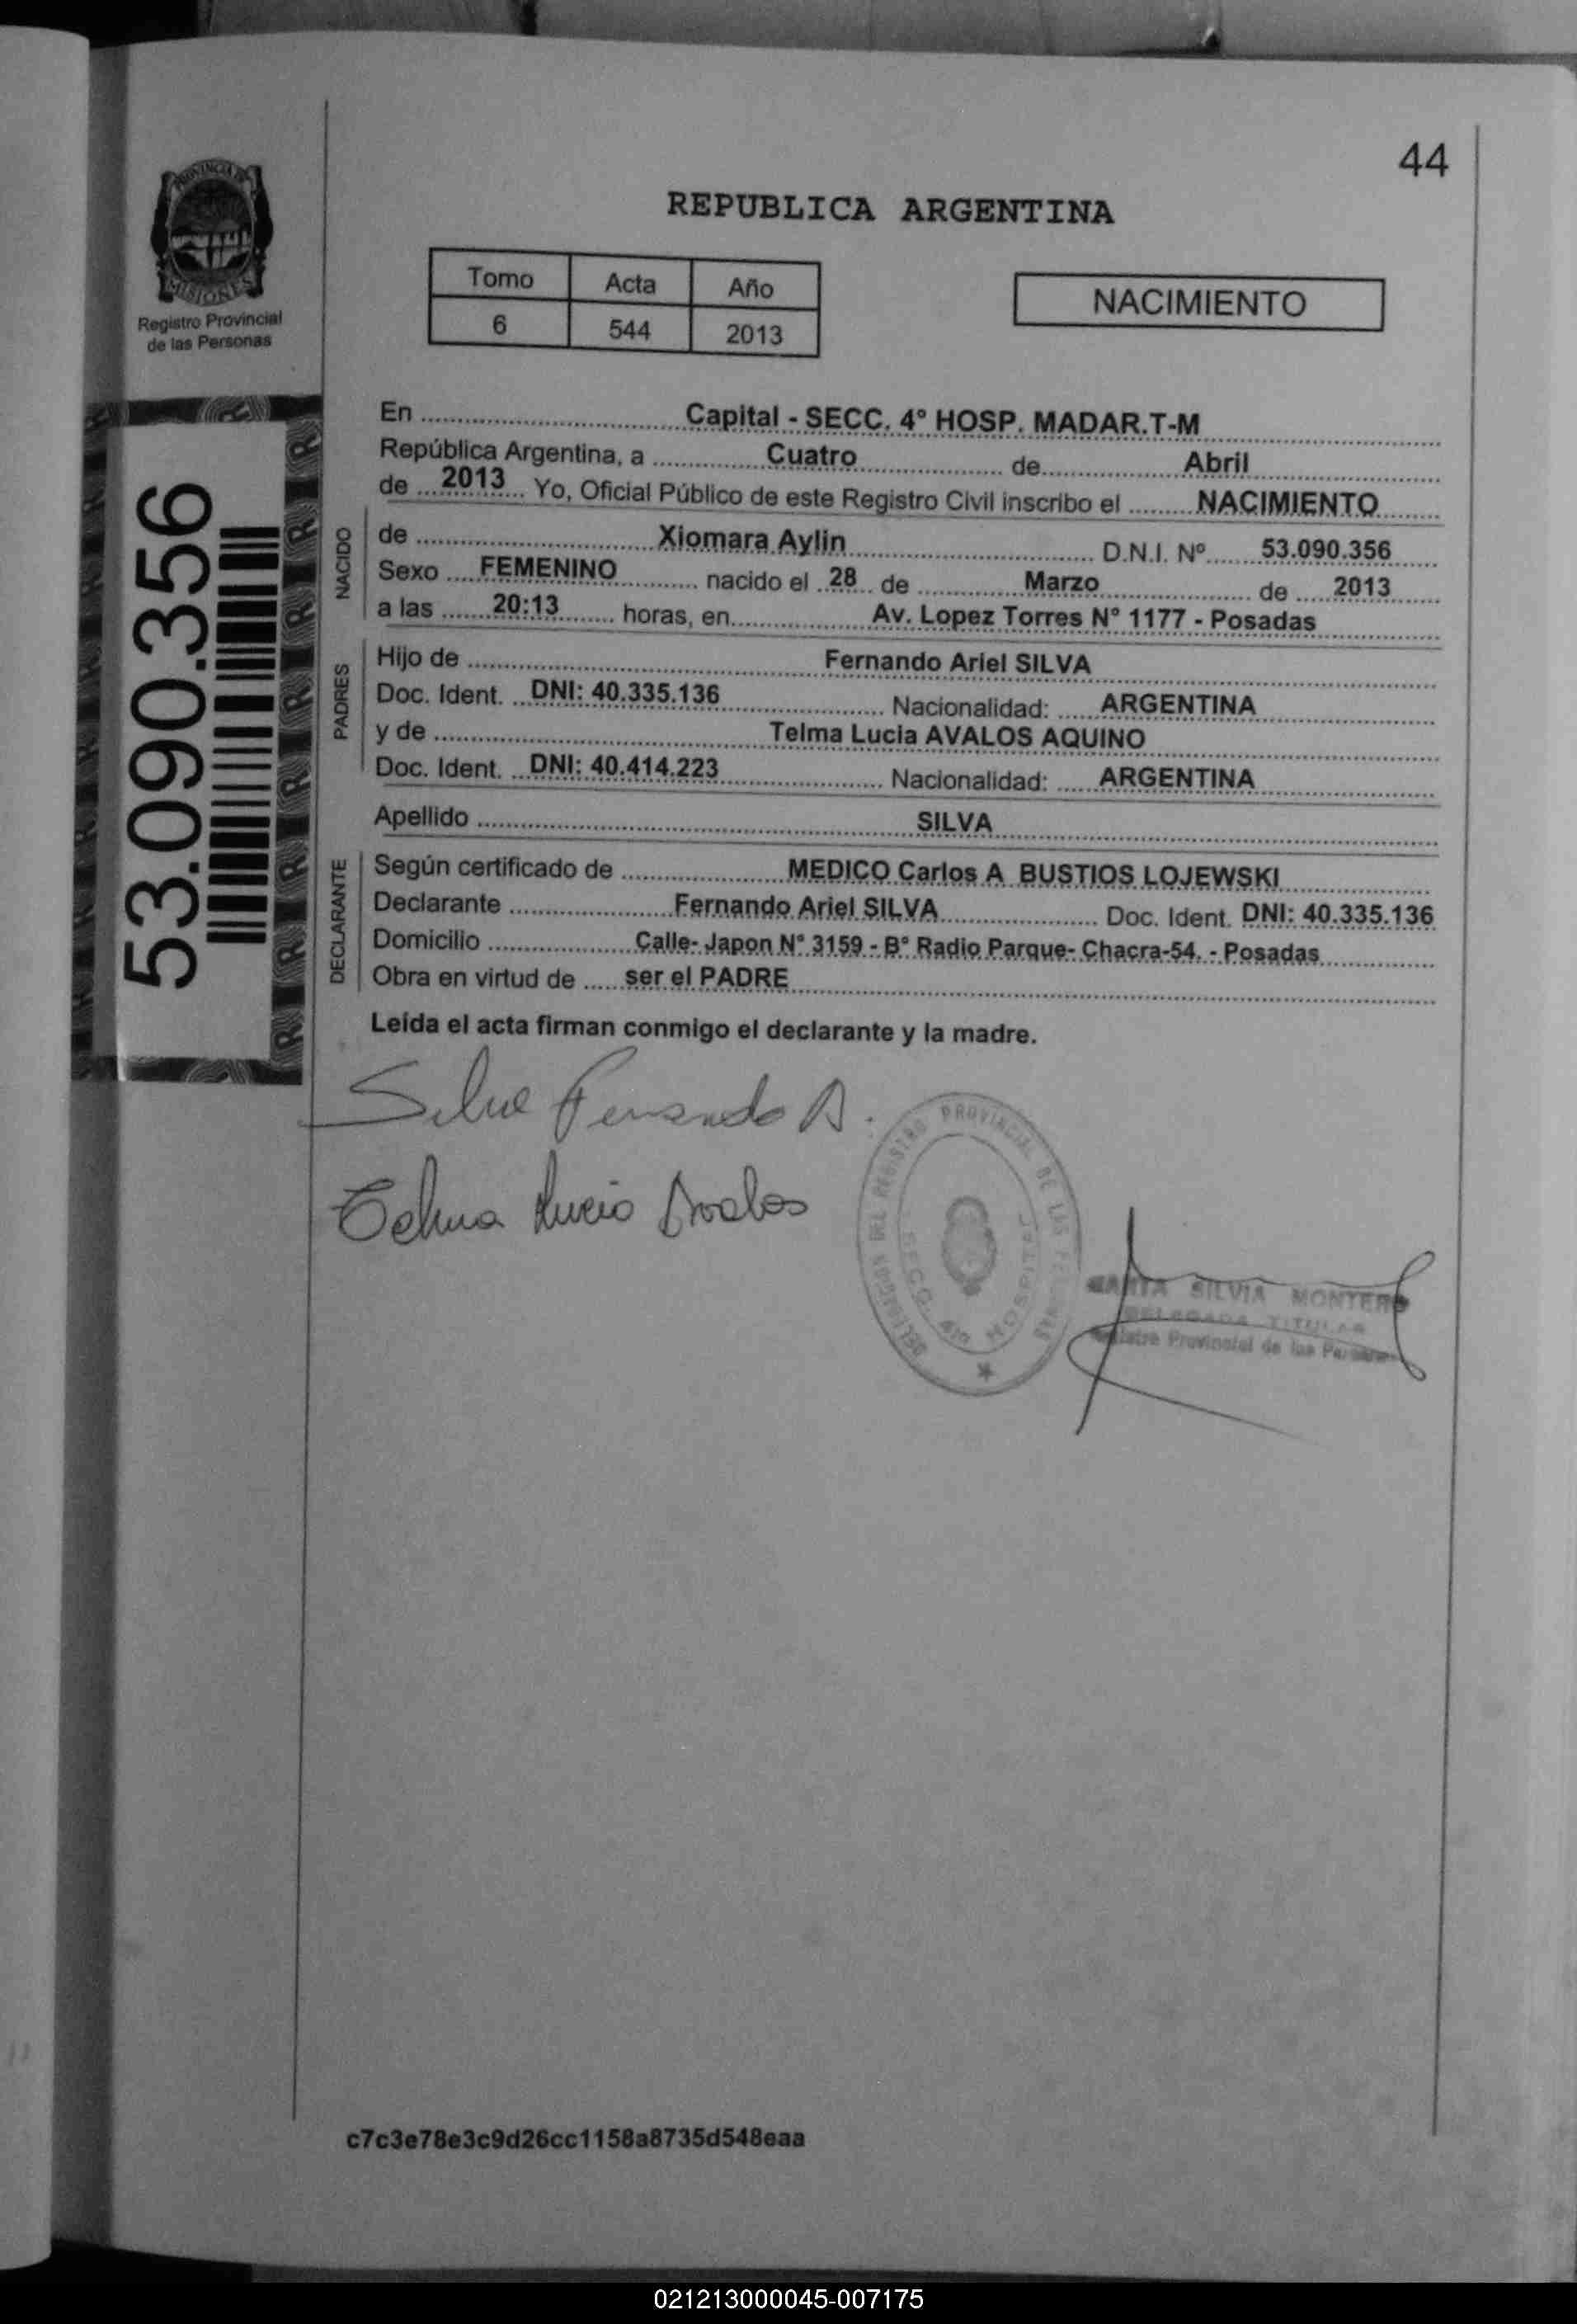 44
PROVINCIA DE
MISIONES
Registro Provincial
de las Personas
REPUBLICA ARGENTINA
Tomo Acta Año
6 544 2013
NACIMIENTO
53.090.356
En Capital - SECC. 4º HOSP. MADAR.T-M
República Argentina, a Cuatro de Abril
de 2013 Yo, Oficial Público de este Registro Civil inscribo el NACIMIENTO
NACIDO
de Xiomara Aylin D.N.I. Nº 53.090.356
Sexo FEMENINO nacido el 28 de Marzo de 2013
a las 20:13 horas, en Av. Lopez Torres N° 1177 - Posadas
PADRES
Hijo de Fernando Ariel SILVA
Doc. Ident. DNI: 40.335.136 Nacionalidad: ARGENTINA
y de Telma Lucia AVALOS AQUINO
Doc. Ident. DNI: 40.414.223 Nacionalidad: ARGENTINA
Apellido SILVA
DECLARANTE
Según certificado de MEDICO Carlos A BUSTIOS LOJEWSKI
Declarante Fernando Ariel SILVA Doc. Ident. DNI: 40.335.136
Domicilio Calle- Japon N° 3159 - B° Radio Parque- Chacra-54. - Posadas
Obra en virtud de ser el PADRE
Leída el acta firman conmigo el declarante y la madre.
Silva Fernando A.
Telma Lucia Avalos
DELEGACION DEL REGISTRO PROVINCIAL DE LAS PERSONAS
SECC. 4ta HOSPITAL
MARTA SILVIA MONTERO
DELEGADA TITULAR
Registro Provincial de las Personas
c7c3e78e3c9d26cc1158a8735d548eaa
021213000045-007175